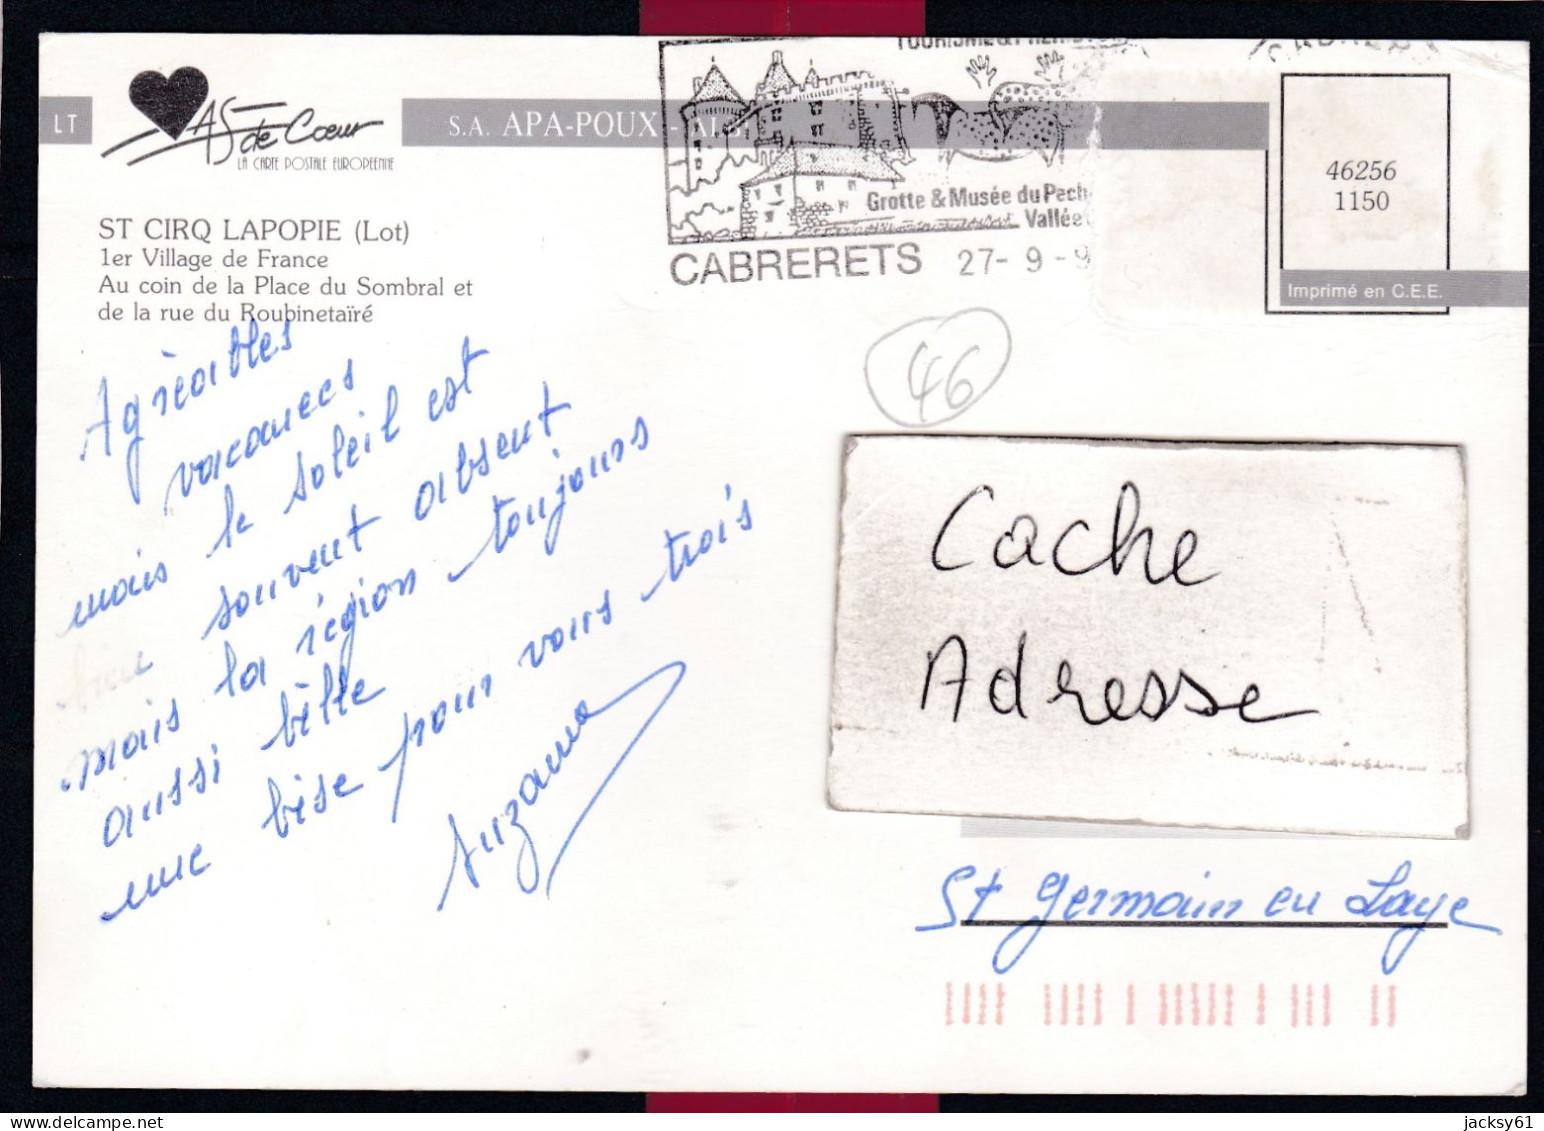 LT
AS de Cœur
LA CARTE POSTALE EUROPEENNE
S.A. APA-POUX - ALBI
TOURISME & PREHISTOIRE
Grotte & Musée du Pech
Vallée
CABRERETS 27-9-9
46256
1150
Imprimé en C.E.E.
ST CIRQ LAPOPIE (Lot)
1er Village de France
Au coin de la Place du Sombral et
de la rue du Roubinetaïré
46
Agréables
vacances
mais le soleil est
bien souvent absent
mais la région toujours
aussi belle
une bise pour vous trois
Suzanne
Cache
Adresse
St Germain en Laye
jacksy61